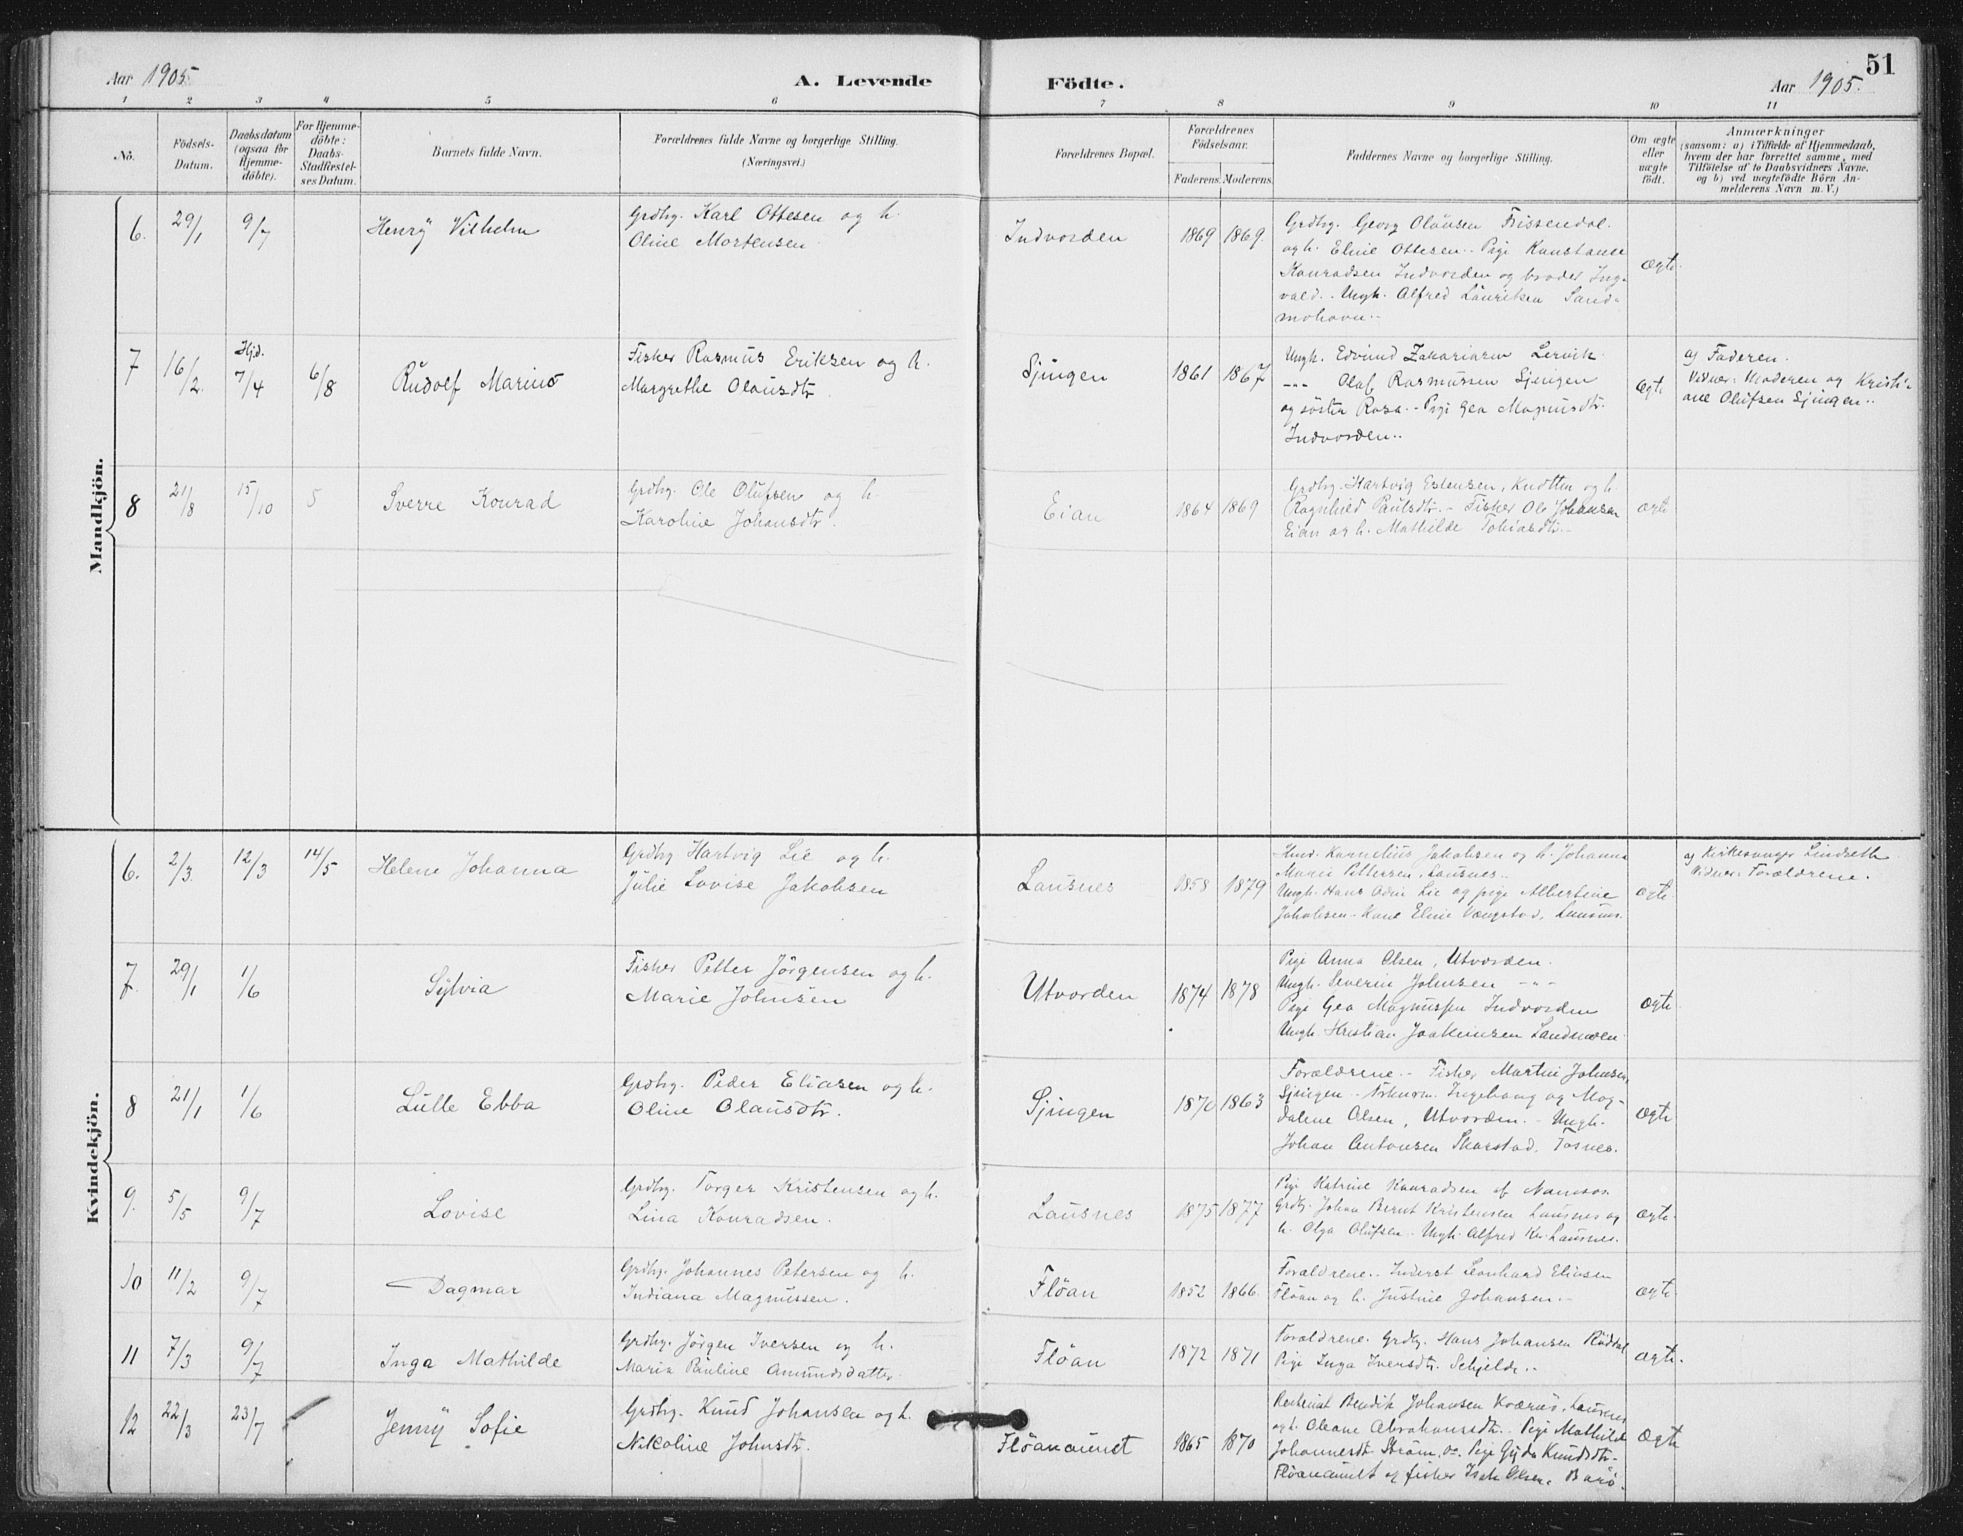 Aar 1905.
A. Levende Födte.
Aar 1905.
51
1 2 3 4 5 6 7 8 9 10 11
No.
Födsels-Datum.
Daabsdatum (ogsaa for Hjemme-döbte).
For Hjemme-döbte: Daabs-Stadfæstel-ses Datum.
Barnets fulde Navn.
Forældrenes fulde Navne og borgerlige Stilling.
(Næringsvei.)
Forældrenes Bopæl.
Forældrenes Födselsaar.
Faderens Moderens
Faddernes Navne og borgerlige Stilling.
Om ægte eller uægte födt.
Anmærkninger
(saasom: a) i Tilfælde af Hjemmedaab,
hvem der har forrettet samme, med
Tilföielse af to Daabsvidners Navne.
og b) ved uægtefödte Börn An-
melderens Navn m. V.)
Mandkjön.
6. 29/1 9/7 Henrÿ Vilhelm
Grdbg. Karl Ottesen og h.
Oline Mortensen.
Indvorden 1869 1869.
Grdbg. Georg Olausen Frissendal.
og h. Eline Ottesen. - Pige Konstance
Konradsen Indvorden og broder Ing-
vald. - Ungk. Alfred Lauritsen Sand-
mohavn..
ægte.
7 16/2. Hjd. 7/4 6/8 Rudolf Marius
Fisker Rasmus Eriksen og h.
Margrethe Olausdtr.
Sjingen 1861 1867
Ungk. Edvind Zakariasen Lervik.
-"- Olaf Rasmussen Sjingen
og söster Rosa. - Pige Gea Magnusdtr.
Indvorden..
ægte
af Faderen.
Vidner: Moderen og Kristi-
ane Olufsen Sjingen..
8 21/8 15/10 5 Sverre Konrad
Grdbg. Ole Olufsen og h.
Karoline Johansdtr.
Eian 1864 1869
Grdbg. Hartvig Estensen, og h.
Ragnhild Paulsdtr. - Fisker Ole Johansen
Eian og h. Mathilde Tobiasdtr. -
ægte
Kvindekjön.
6. 2/3. 12/3 14/5 Helene Johanna
Grdbg Hartvig Lie og h.
Julie Lovise Jakobsen
Lausnes 1858 1879
Kornelius Jakobsen og h. Johanna
Marie Pettersen, Lausnes..
Ungk. Hans Odin Lie og pige Albertine
Jakobsen - Kone Eline Vængstad, Lausnes.
ægte.
af Kirkesanger Lindseth
Vidner: Forældrene.
7. 29/1 1/6 Sylvia
Fisker Petter Jörgensen og h.
Marie Johnsen
Utvorden 1874 1878
Pige Anna Olsen, Utvorden.
Ungk. Severin Johnsen -"-
Pige Gea Magnussen Indvorden
Ungk. Kristian Joakimsen Sandmoen.
ægte
8 21/1 1/6 Lulle Ebba
Grdbg. Peder Eliasen og h.
Oline Olausdtr.
Sjingen 1870 1863
Forældrene. - Fisker Martin Johnsen,
Sjingen - Ingeborg og Mag-
dalene Olsen, Utvorden. - Ungk.
Johan Antonsen Skarstad, Fosnes.
ægte
9. 5/5 9/7 Lovise
Grdbg. Torger Kristensen og h.
Lina Konradsen.
Lausnes 1875 1877
Pige Katrine Konradsen af Namsos
Grdbg. Johan Bernt Kristensen Lausnes og
h. Olga Olufsen - Ungk. Alfred Kr. Lausnes.
ægte.
10 11/2 9/7 Dagmar
Grdbg. Johannes Petersen og h.
Indiana Magnussen.
Flöan 1852 1866.
Forældrene.. Inderst Leonhard Eliasen
Flöan og h. Justine Johansen. -
ægte.
11 7/3 9/7 Inga Mathilde
Grdbg. Jörgen Iversen og h.
Marie Pauline Amundsdatter.
Flöan 1872 1871
Forældrene. Grdbg. Hans Johansen
Pige Inga Iversdtr. Schjelde..
ægte.
12 22/3 23/7 Jenny Sofie
Grdbg. Knud Johansen og h.
Nikoline Johnsdtr.
Flöanaunet 1865 1870
Bendik Johansen Kværnö, Lausnes
og h. Oleane Abrahamsdtr. - Pige Mathilde
Johannesdtr. Ström, - Pige Gyda Knudsdtr.
Flöanaunet og fisker Isak Olsen, Barö.
ægte